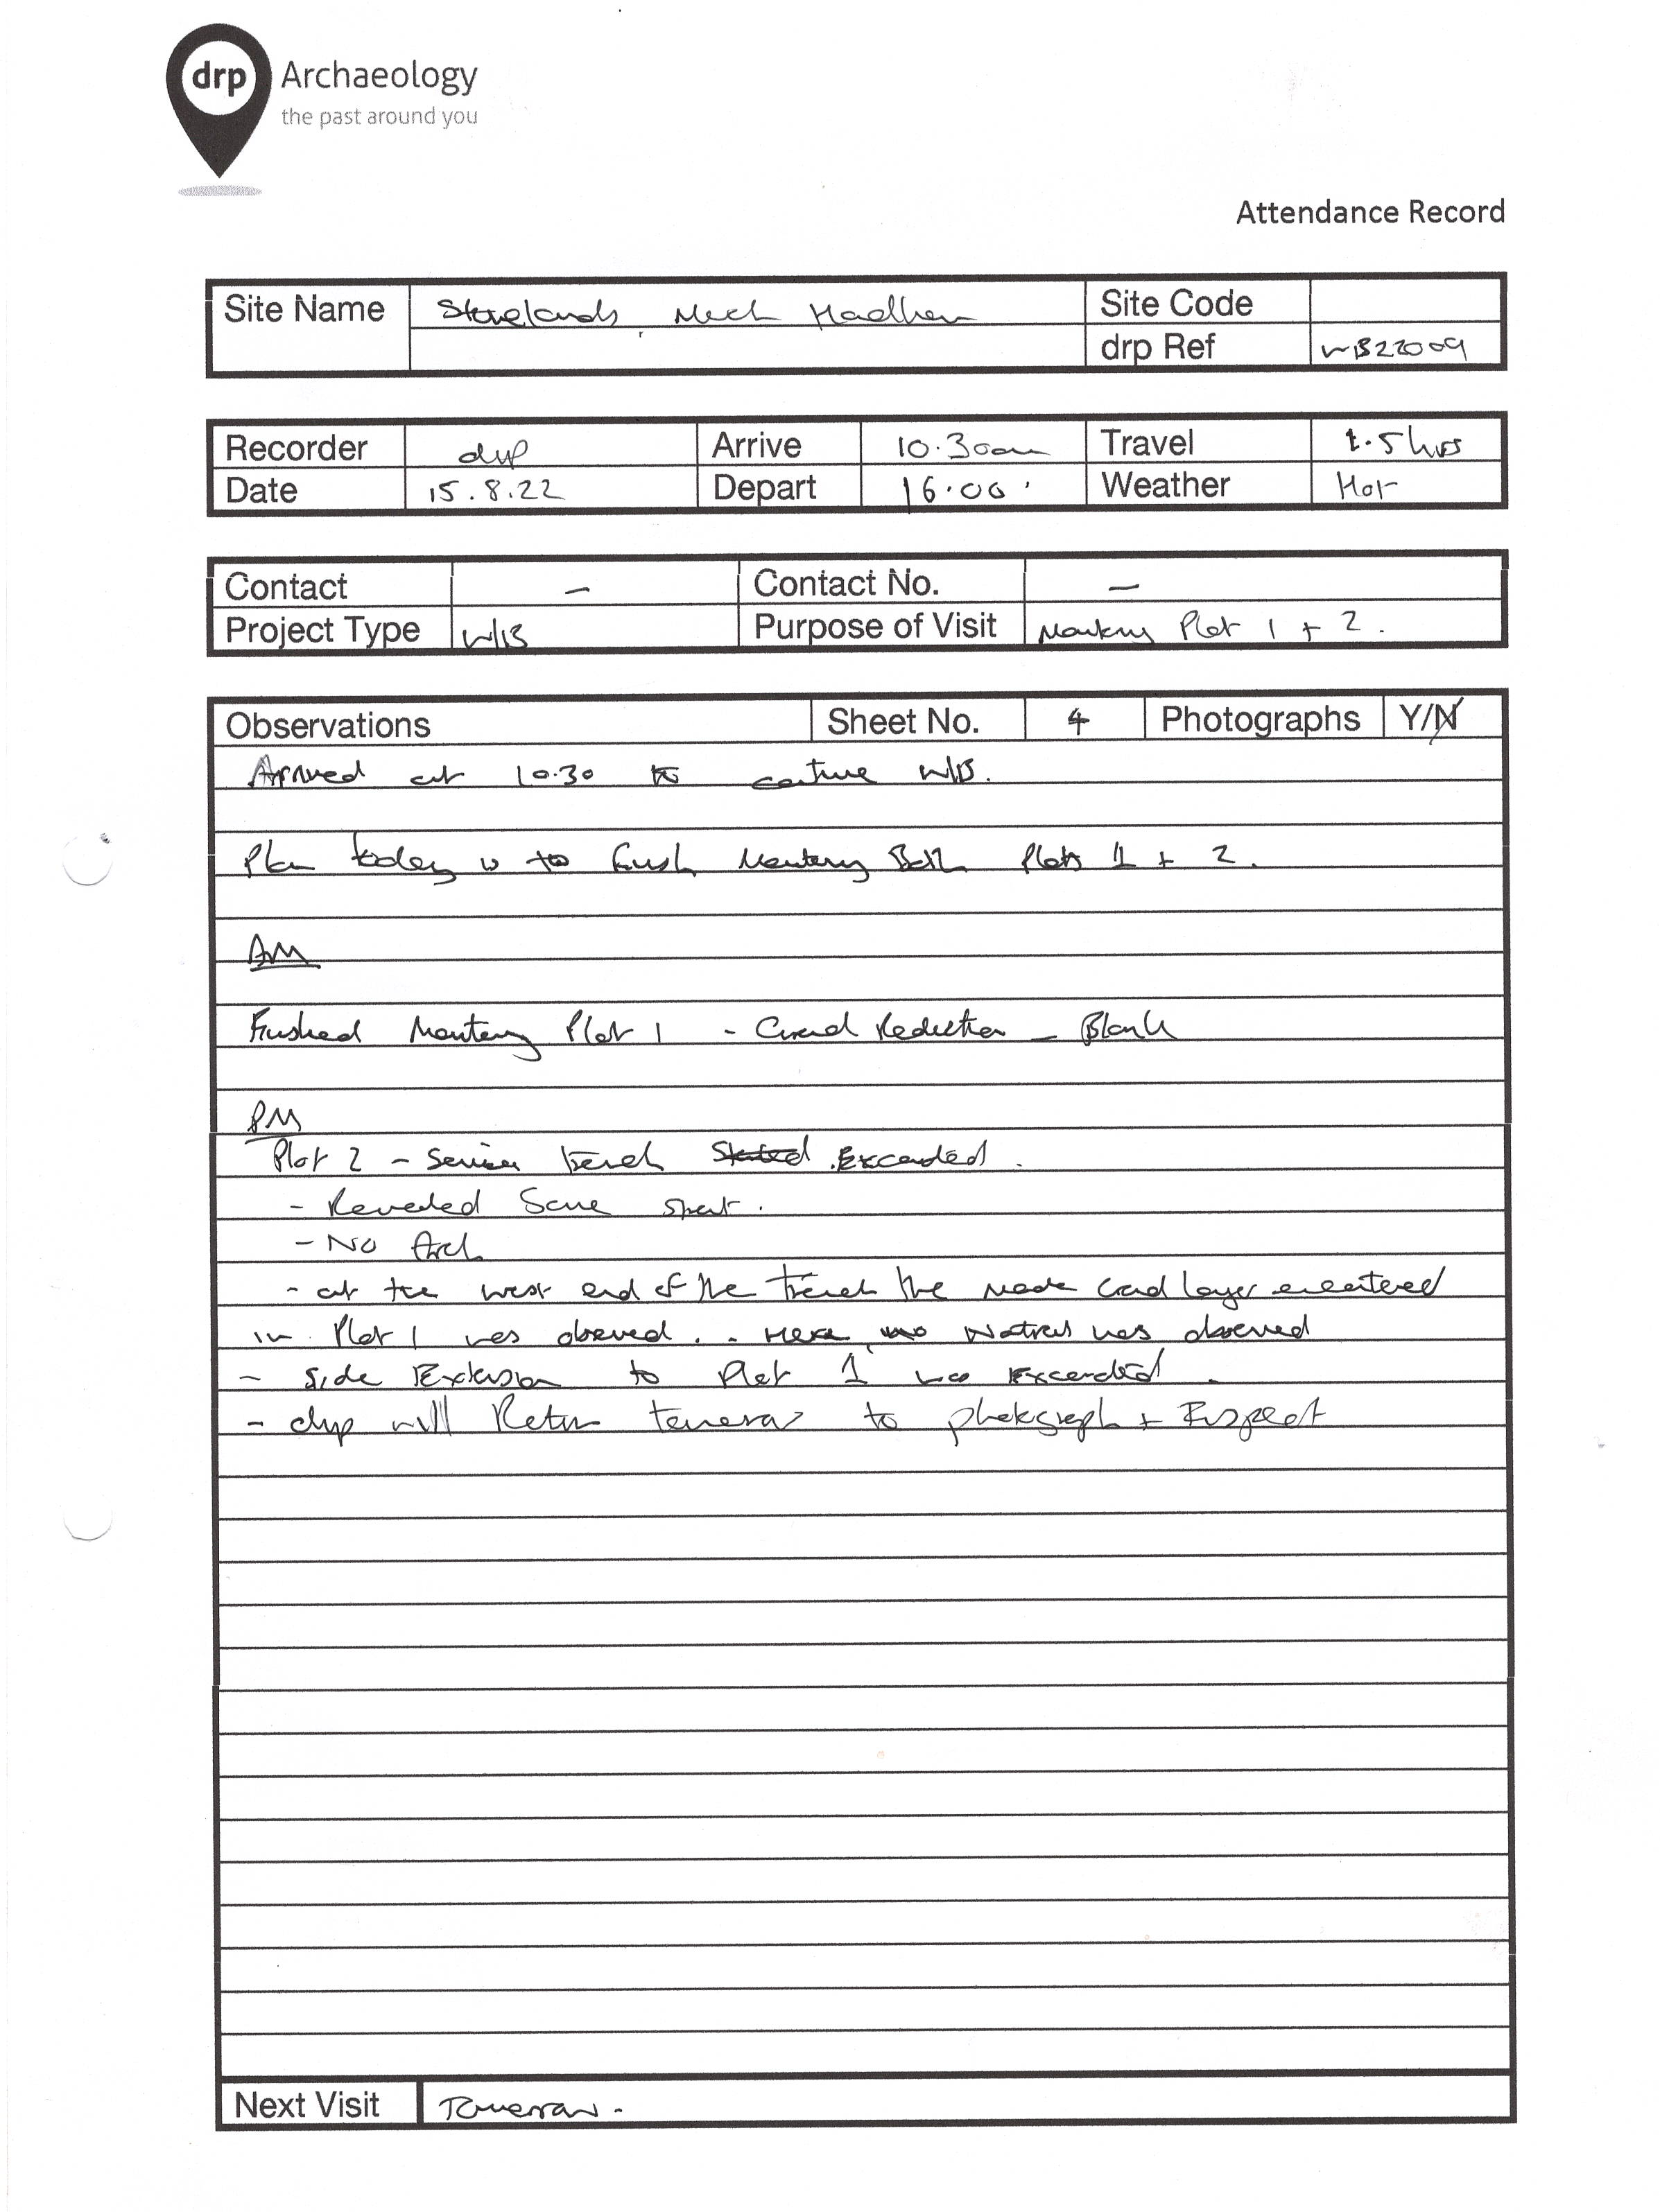 drp Archaeology
the past around you
Attendance Record
Site Name Stonelands, Much Hadham Site Code
drp Ref WB22009
Recorder drp Arrive 10.30am Travel 1.5hrs
Date 15.8.22 Depart 16.00 Weather Hot
Contact - Contact No. -
Project Type W/B Purpose of Visit Monitoring Plot 1 + 2.
Observations Sheet No. 4 Photographs Y/N
Arrived at 10.30 to continue W/B.
Plan today is to finish Monitoring Both Plots 1 + 2.
AM
Finished Monitoring Plot 1 - Ground Reduction - Blank
PM
Plot 2 - Service trench Started Excavated.
- Revealed Same strat.
- No Arch
- at the west end of the trench the Made Ground layer encountered
in Plot 1 was observed. Here no Natural was observed
- Side Extension to Plot 1 was Excavated.
- drp will Return tomorrow to photograph + Inspect
Next Visit Tomorrow.